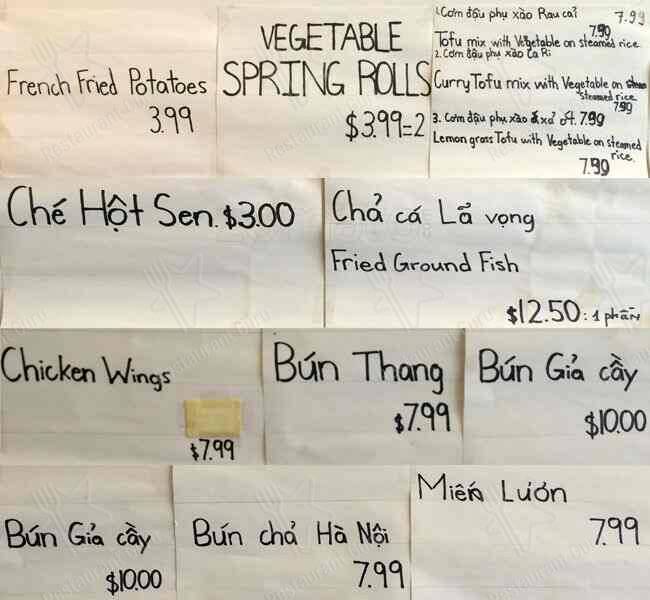 French Fried Potatoes
3.99
VEGETABLE
SPRING ROLLS
$3.99=2
1. Cơm đậu phụ xào Rau cải 7.99
7.99
Tofu mix with Vegetable on steamed rice
2. Cơm đậu phụ xào Ca Ri
Curry Tofu mix with Vegetable on
steamed rice
7.99
3. Cơm đậu phụ xào xả ớt. 7.99
Lemon grass Tofu with Vegetable on steamed
rice.
7.99
Ché Hột Sen. $3.00
Chả cá Lã vọng
Fried Ground Fish
$12.50: 1 phần
Chicken Wings
$7.99
Bún Thang
$7.99
Bún Giả cầy
$10.00
Bún Giả cầy
$10.00
Bún chả Hà Nội
7.99
Miến Lươn
7.99